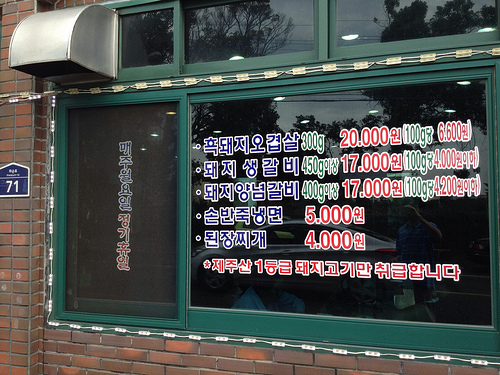 매주월요일 정기휴일
· 흑돼지오겹살 300g 20.000원(100g당 6.600원)
· 돼지 생갈비 450g이상 17.000원(100g당4.000원이하)
· 돼지양념갈비 400g이상 17.000원(100g당4.200원이하)
· 손반죽냉면 5.000원
· 된장찌개 4.000원
*제주산 1등급 돼지고기만 취급합니다
71